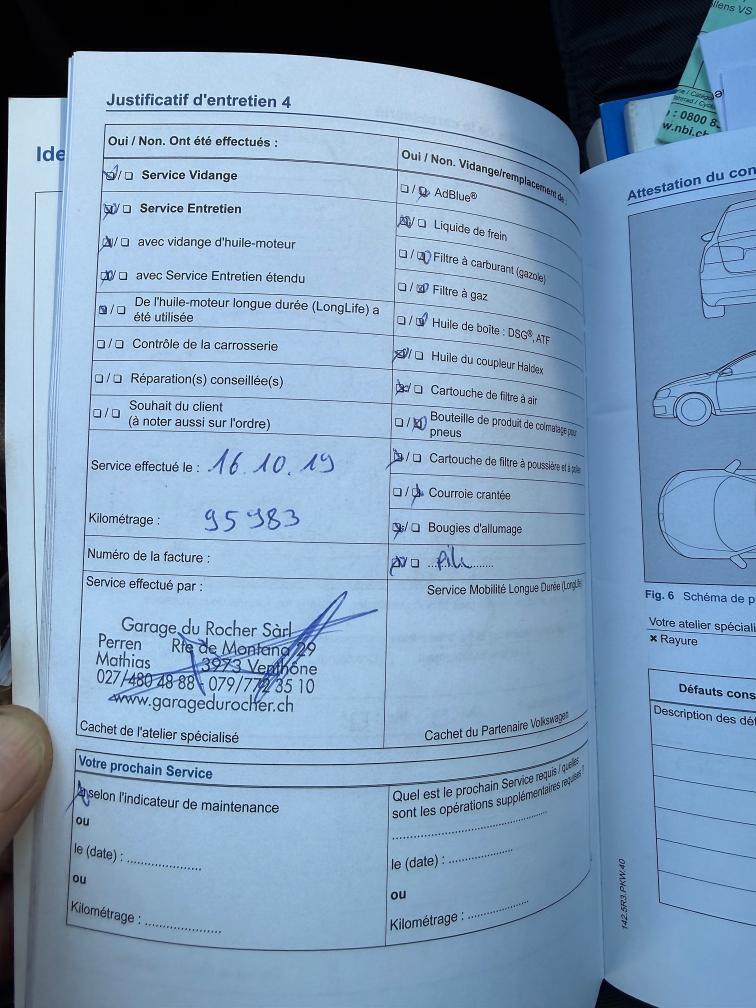 llens VS
: 0800 8
w.nbi.ch
Ide
Justificatif d'entretien 4
Oui / Non. Ont été effectués :
❏/❏ Service Vidange
❏/❏ Service Entretien
❏/❏ avec vidange d'huile-moteur
❏/❏ avec Service Entretien étendu
❏/❏ De l'huile-moteur longue durée (LongLife) a
été utilisée
❏/❏ Contrôle de la carrosserie
❏/❏ Réparation(s) conseillée(s)
❏/❏ Souhait du client
(à noter aussi sur l'ordre)
Service effectué le : 16.10.19
Kilométrage : 95983
Numéro de la facture :
Service effectué par :
Garage du Rocher Sàrl
Perren Rte de Montana 29
Mathias 3973 Venthône
027/480 48 88 - 079/772 35 10
www.garagedurocher.ch
Cachet de l'atelier spécialisé
Oui / Non. Vidange/remplacement de :
❏/❏ AdBlue®
❏/❏ Liquide de frein
❏/❏ Filtre à carburant (gazole)
❏/❏ Filtre à gaz
❏/❏ Huile de boîte : DSG®, ATF
❏/❏ Huile du coupleur Haldex
❏/❏ Cartouche de filtre à air
❏/❏ Bouteille de produit de colmatage pour
pneus
❏/❏ Cartouche de filtre à poussière et à pollen
❏/❏ Courroie crantée
❏/❏ Bougies d'allumage
❏/❏ pile
Service Mobilité Longue Durée (LongLife
Cachet du Partenaire Volkswagen
Votre prochain Service
selon l'indicateur de maintenance
ou
le (date) : ....................
ou
Kilométrage : ....................
Quel est le prochain Service requis / quelles
sont les opérations supplémentaires requises ?
........................................
le (date) : ..................
ou
Kilométrage : ..................
142.5R3.PKW.40
Attestation du con
Fig. 6 Schéma de p
Votre atelier spéciali
× Rayure
Défauts cons
Description des déf